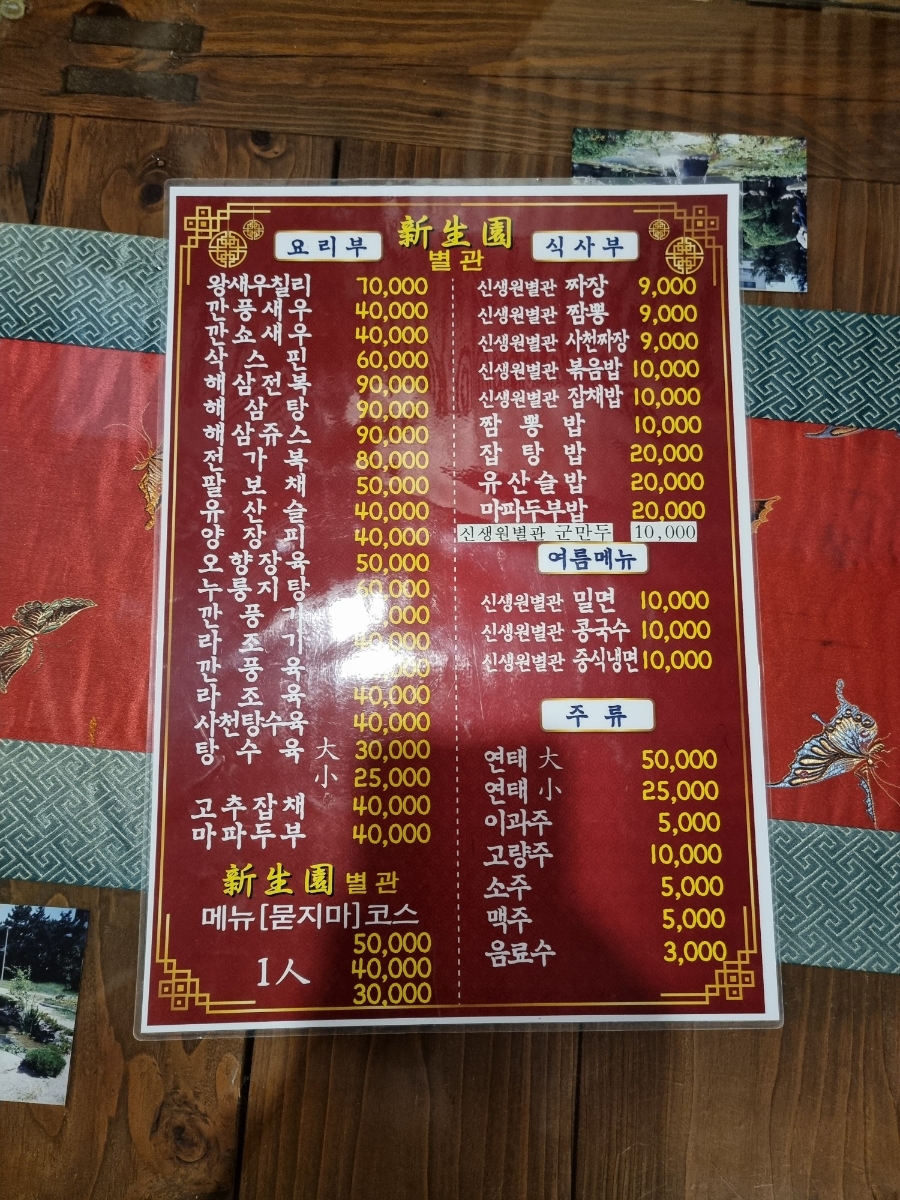 新生園
別館
요리부
왕새우칠리 70,000
깐풍새우 40,000
깐쇼새우 40,000
삭스핀 60,000
해삼전복 90,000
해삼탕 90,000
해삼쥬스 90,000
전가복 80,000
팔보채 50,000
유산슬 40,000
양장피 40,000
오향장육 50,000
누룽지탕 60,000
깐풍기
라조기 40,000
깐풍육
라조육 40,000
사천탕수육 40,000
탕수육 大 30,000
小 25,000
고추잡채 40,000
마파두부 40,000
新生園 別館
메뉴[묻지마]코스
1人 50,000
40,000
30,000
식사부
신생원별관 짜장 9,000
신생원별관 짬뽕 9,000
신생원별관 사천짜장 9,000
신생원별관 볶음밥 10,000
신생원별관 잡채밥 10,000
짬뽕밥 10,000
잡탕밥 20,000
유산슬밥 20,000
마파두부밥 20,000
신생원별관 군만두 10,000
여름메뉴
신생원별관 밀면 10,000
신생원별관 콩국수 10,000
신생원별관 중식냉면 10,000
주류
연태 大 50,000
연태 小 25,000
이과주 5,000
고량주 10,000
소주 5,000
맥주 5,000
음료수 3,000